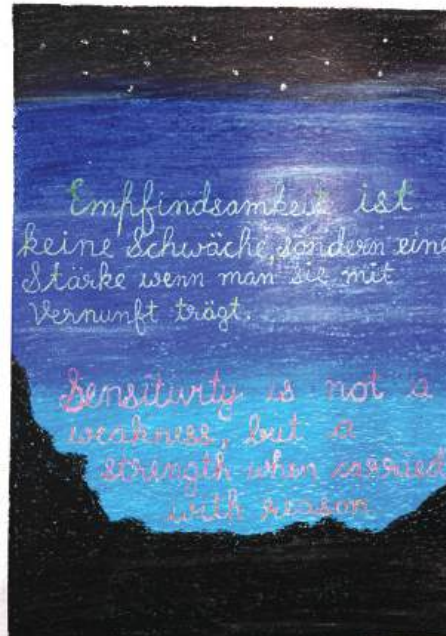 Empfindsamkeit ist
keine Schwäche, sondern eine
Stärke wenn man sie mit
Vernunft trägt.
Sensitivity is not a
weakness, but a
strength when carried
with reason